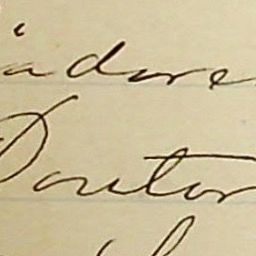 adore
Doutor